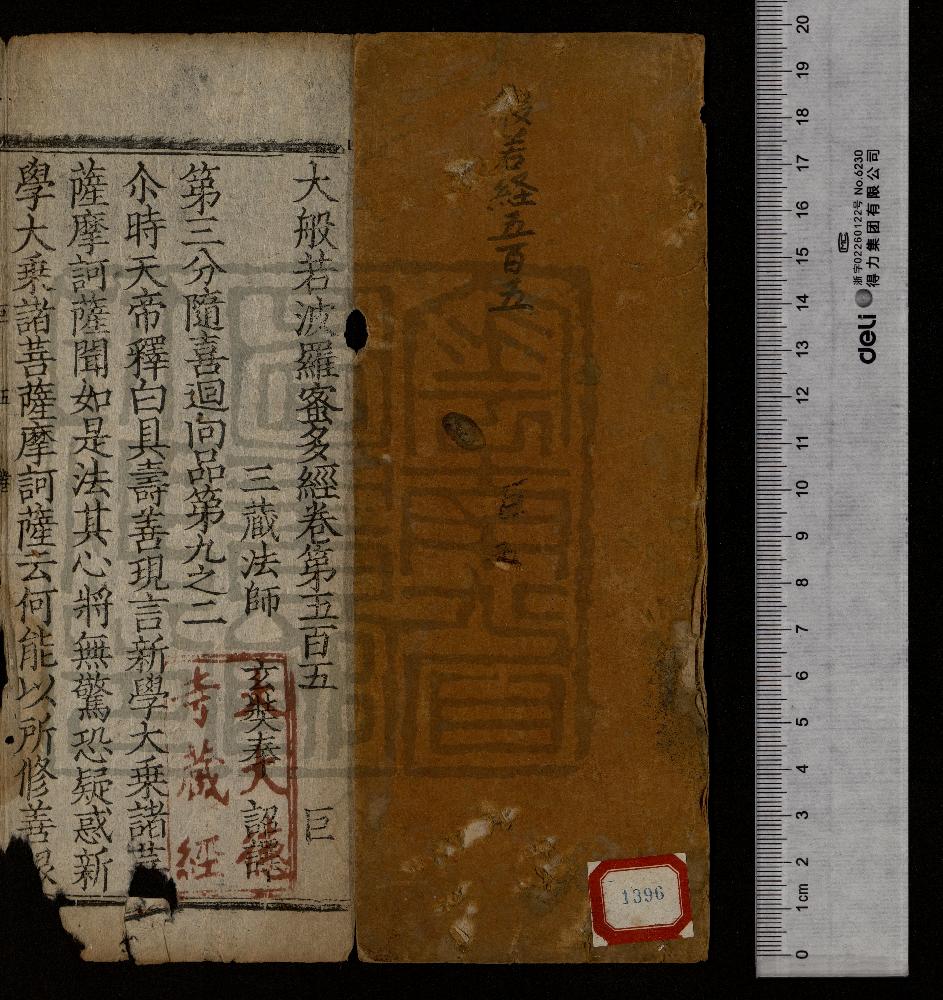 般若经五百五
巨 五
1396
大般若波羅蜜多經卷第五百五 巨
三藏法師 玄奘奉 詔譯
第三分隨喜迴向品第九之二
尒時天帝釋白具壽善現言新學大乗諸菩
薩摩訶薩聞如是法其心將無驚恐疑惑新
學大乗諸菩薩摩訶薩云何能以所修善根
寺藏經
20
19
18
17
16
15
14
13
12
11
10
9
8
7
6
5
4
3
2
1cm
0
deli 得力集团有限公司
浙字02260122号 No.6230
MC